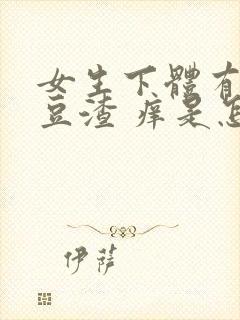 女生下體有
豆渣 痒是怎
伊薩